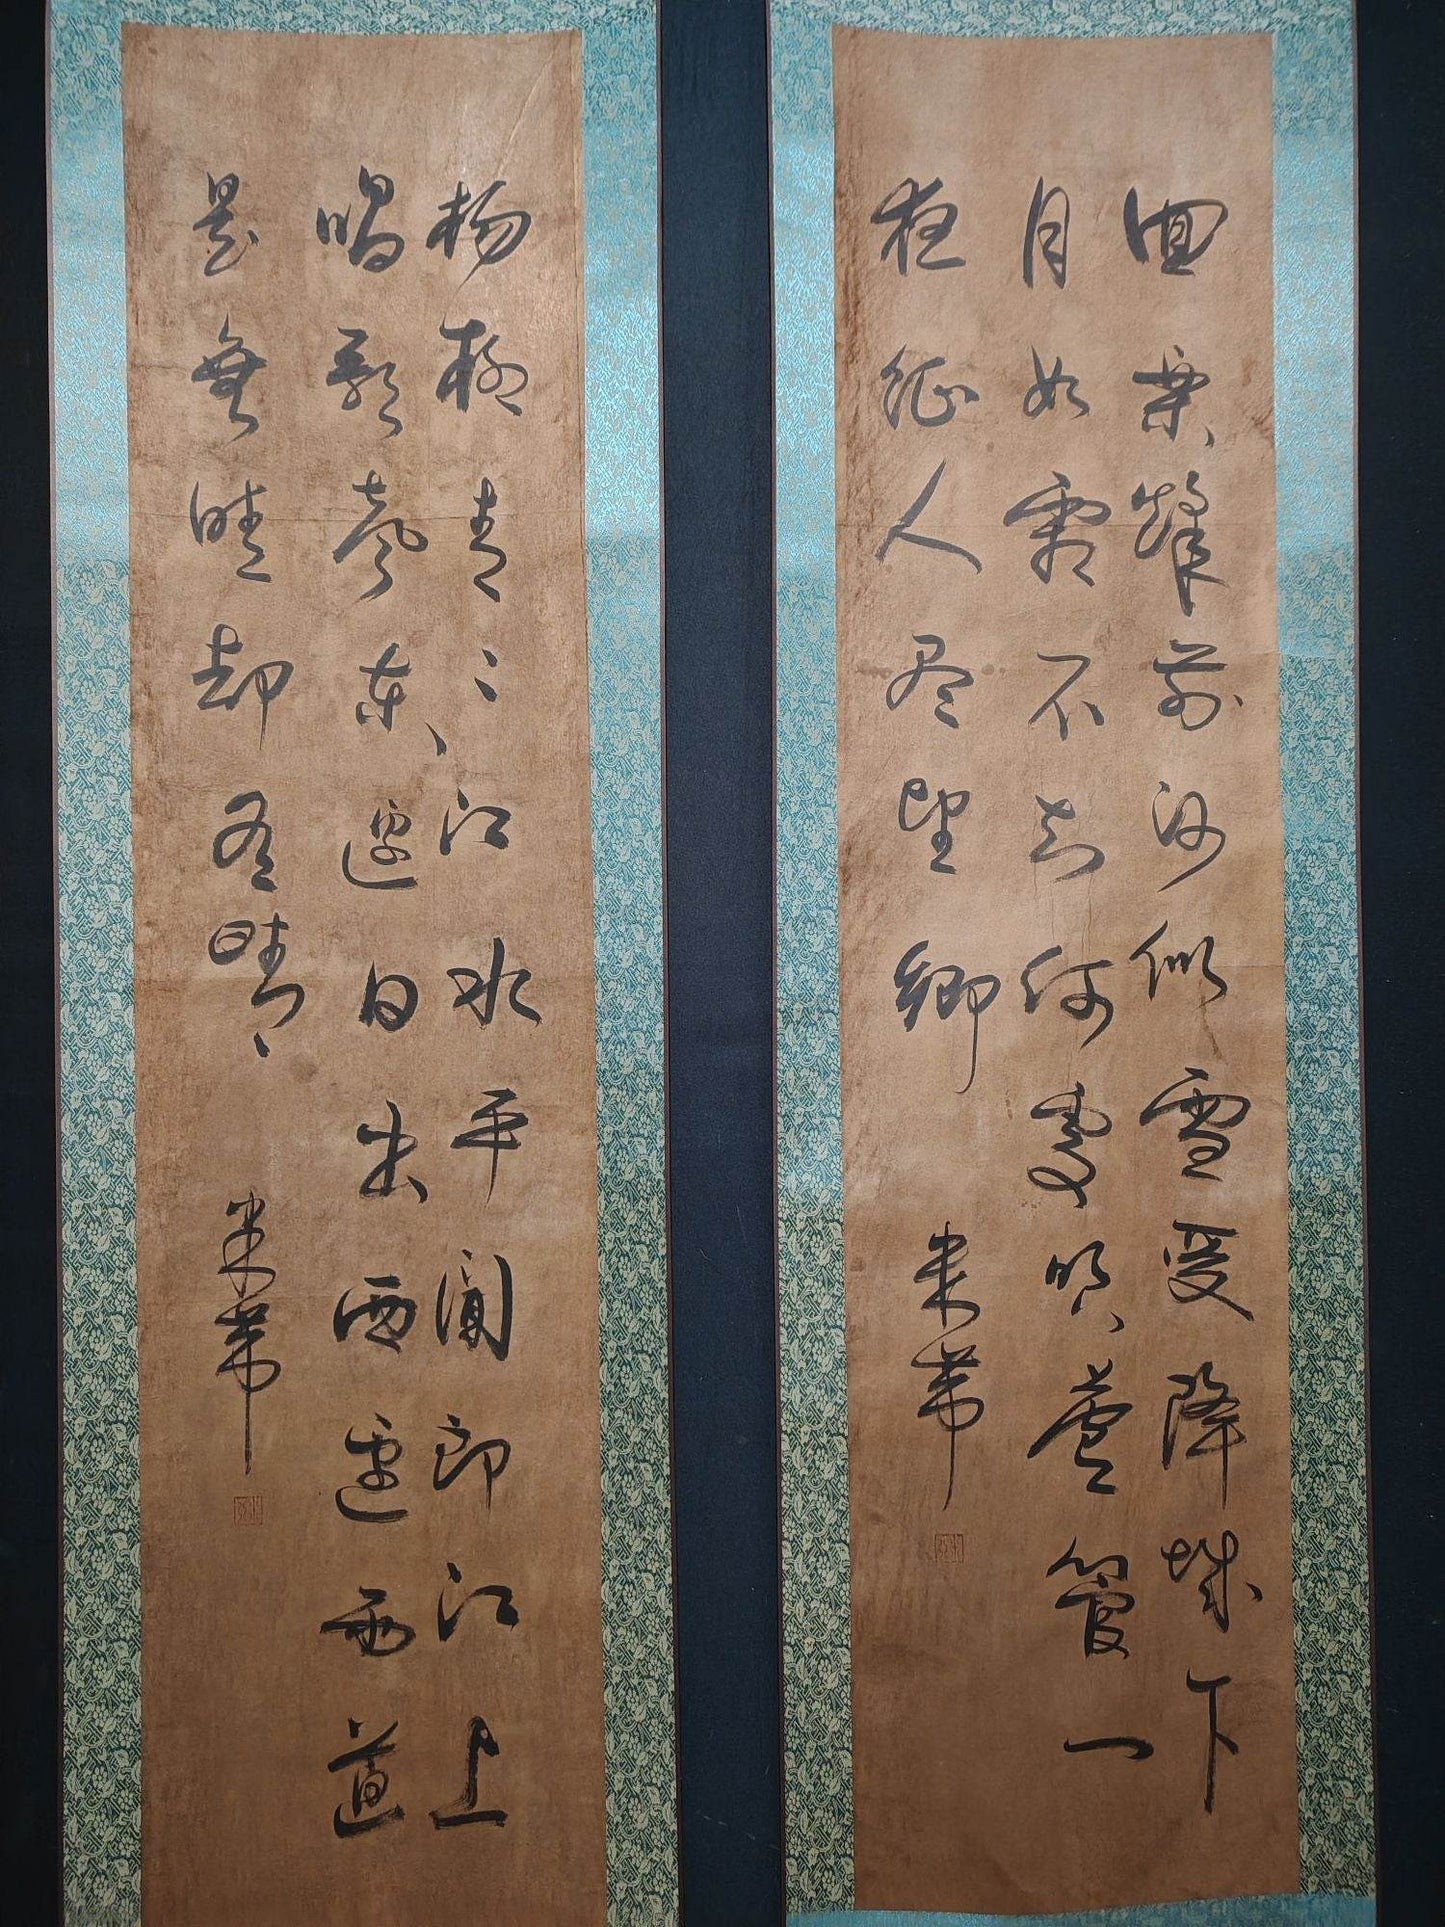 回樂烽前沙似雪受降城下
月如霜不知何處吹蘆管一
夜征人尽望鄉
米芾
楊柳青〻江水平聞郎江上
唱歌聲東邊日出西邊雨道
是無晴却有晴
米芾